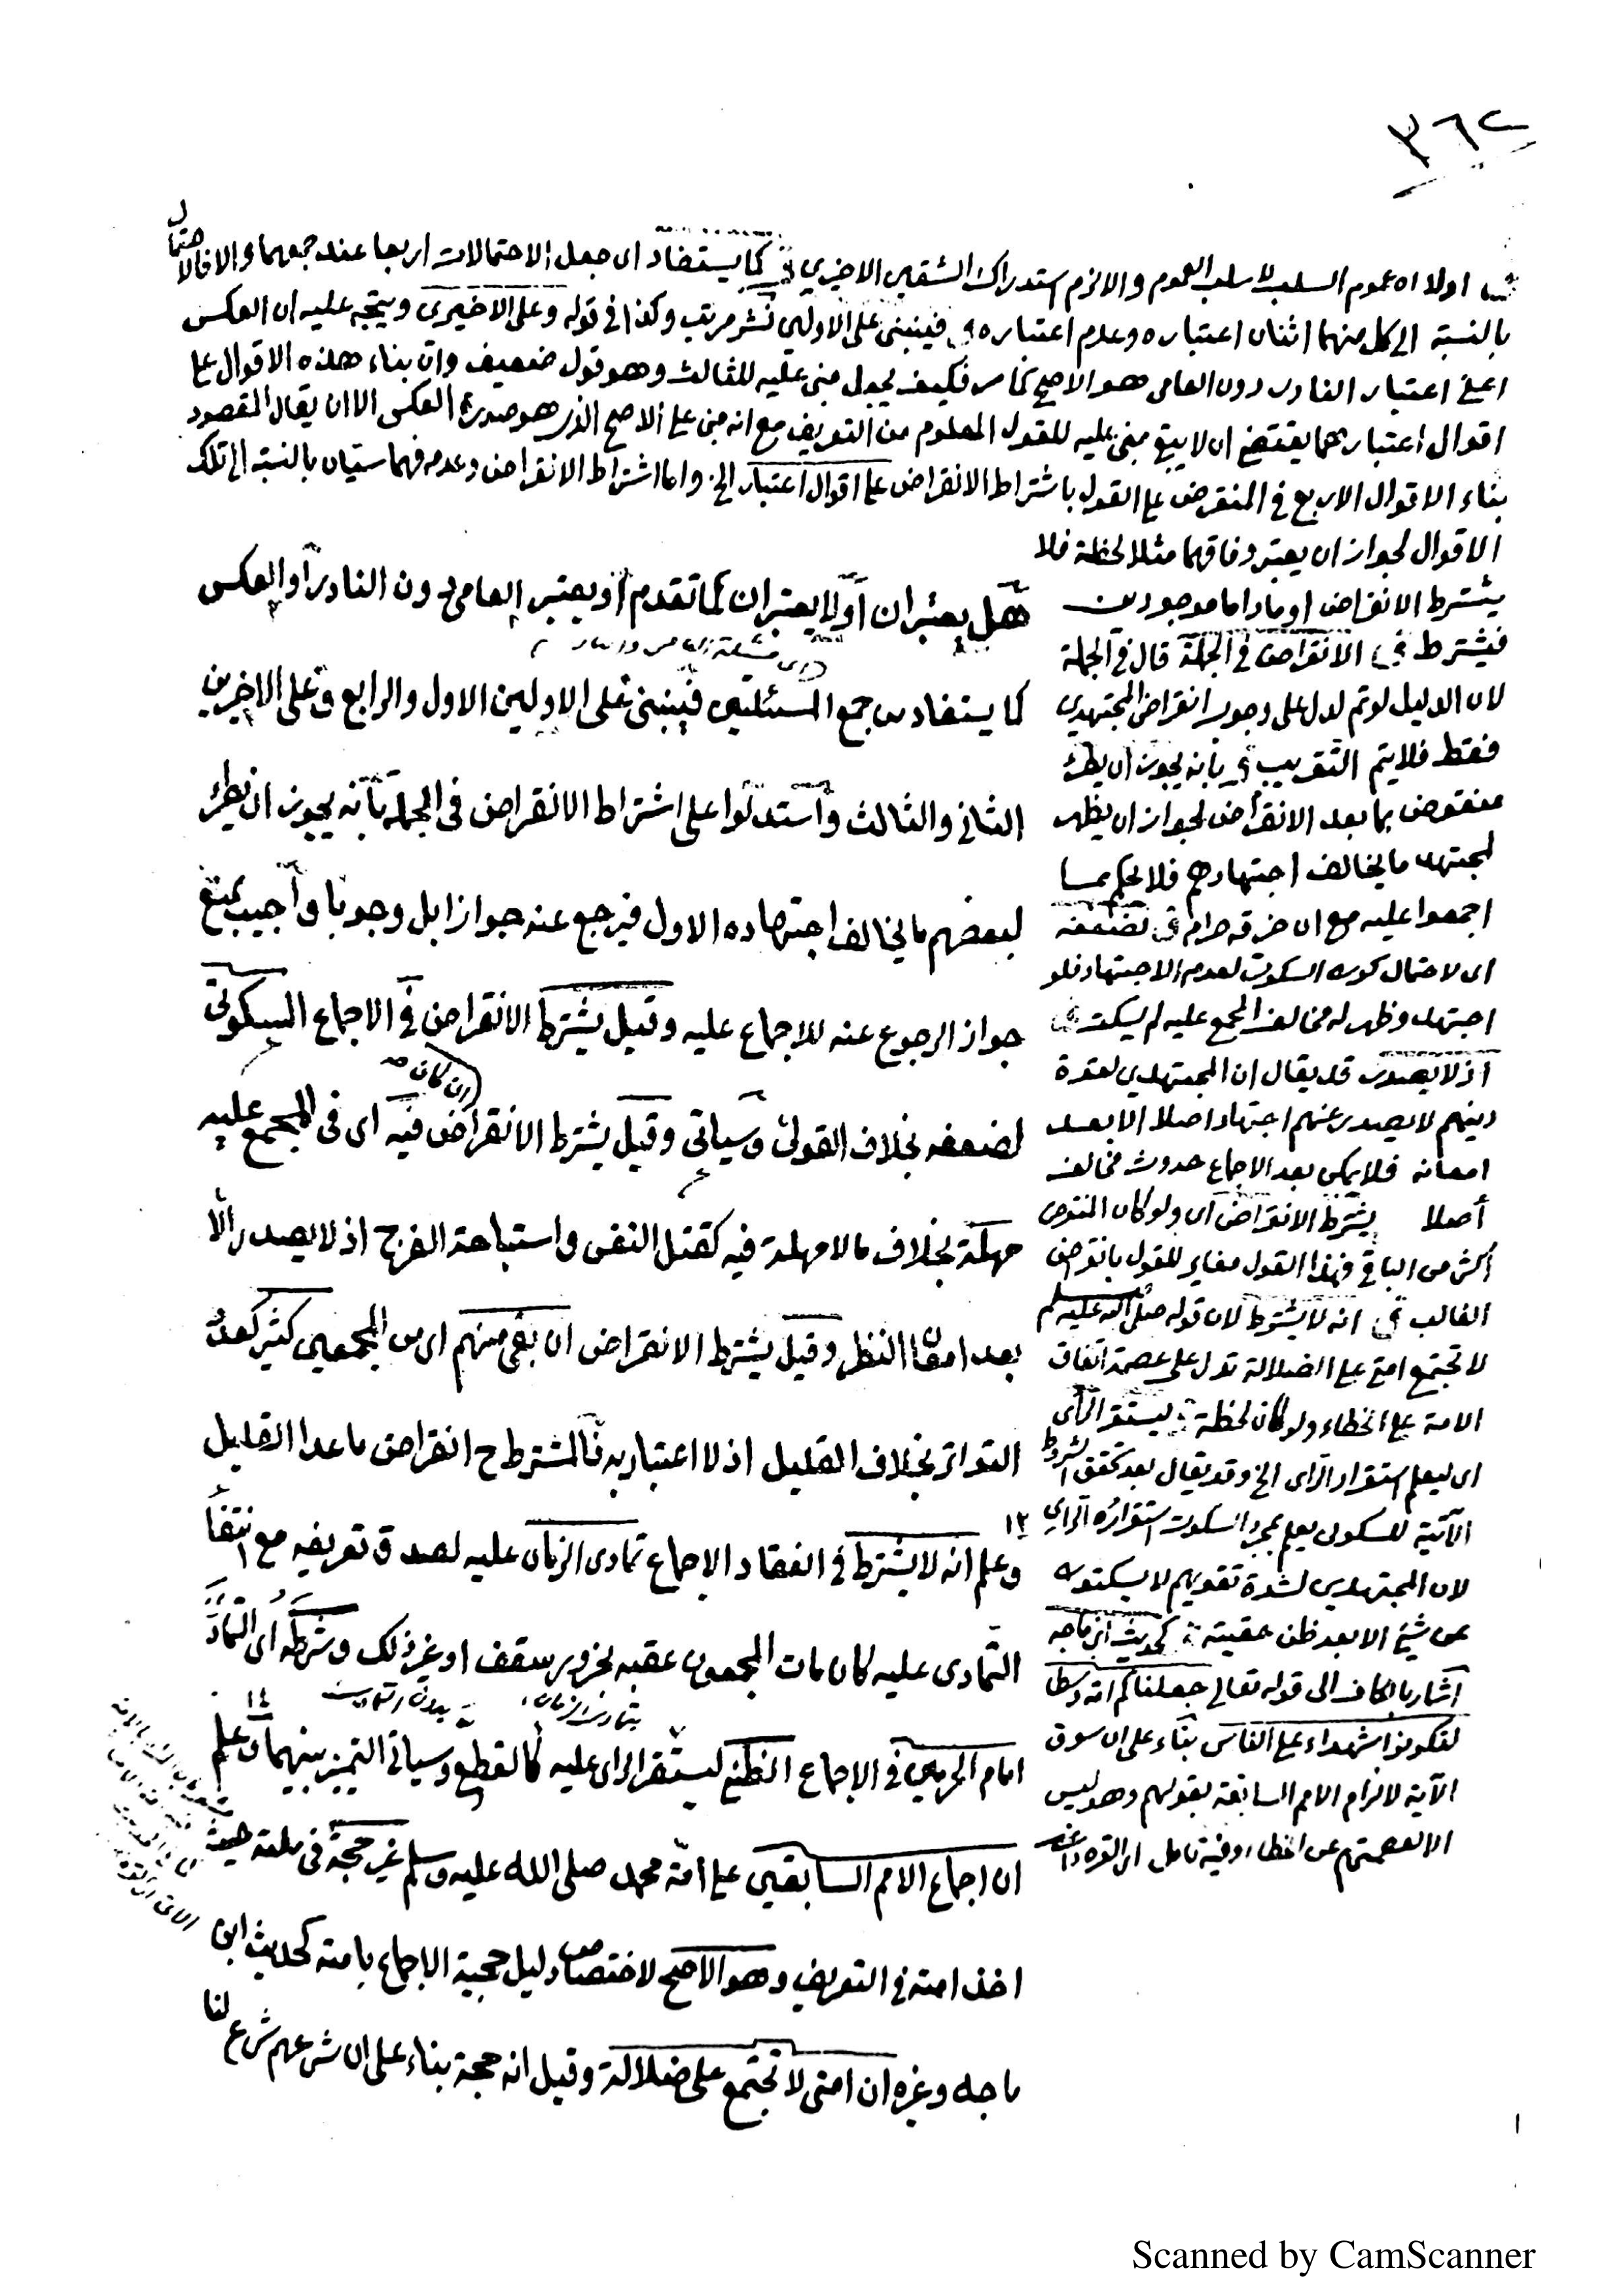 ٣٦٢
اولا اه عموم السلب لا سلب العموم والا لزم استدراك الشقين الاخيرين كما يستفاد اى جعل الاحتمالات اربعا عند جمعهما والا فالاحتمال
بالنسبة الى كل منهما اثنان اعتباره وعدم اعتباره فينبنى على الاولين نشر مرتب وكذا فى قوله وعلى الاخيرين ويتجه عليه ان العكس
اعنى اعتبار النادر دون العامى هو الاصح كما مر فكيف يجعل مبنى عليه للثالث وهو قول ضعيف وان بناء هذه الاقوال على
اقوال اعتبارهما يقتضى ان لا يبقى مبنى عليه للقول المعلوم من التعريف مع انه مبنى على الاصح الذى هو صورة العكس الا ان يقال المقصود
بناء الاقوال الاربع فى المنقرض على القول باشتراط الانقراض على اقوال اعتبار الخ واما اشتراط الانقراض وعدمه فهما سيان بالنسبة الى تلك
الاقوال لجواز ان يعتبر وفاقهما مثلا لحظة فلا
يشترط الانقراض او ما داما موجودين
فيشترط الانقراض فى الجملة قال فى الجملة
لان الدليل لو تم لدل على وجوب انقراض المجتهدين
فقط فلا يتم التقريب بانه يجوز ان يطرئ
منقوض بما بعد الانقراض لجواز ان يظهر
لمجتهد ما يخالف اجتهادهم فلا يحكم بما
اجمعوا عليه مع ان خرقه حرام لضعفه
اى لاحتمال كون السكوت لعدم الاجتهاد فلو
اجتهد وظهر له مخالف المجمع عليه لم يسكت
اذ لا يصدر قد يقال ان المجتهدين لقوة
دينهم لا يصدر عنهم اجتهاد اصلا الا بعد
امعانه فلا يمكن بعد الاجماع حدوث مخالف
أصلا يشترط الانقراض اى ولو كان المنقرض
اكثر من الباقى فهذا القول مغاير للقول بانقراض
الغالب انه لا يشترط لان قوله صلى الله عليه وسلم
لا تجتمع امتى على الضلالة تدل على عصمة اتفاق
الامة على الخطاء ولو كان لحظة ليستقر الرأى
اى ليعلم استقرار الراى الخ وقد يقال بعد تحقق الشروط
الآتية للسكوتى يعلم بمجرد السكوت استقرار الراى
لان المجتهدين لشدة تقويهم لا يسكتون
عن شئ الا بعد ظن حقيته كحديث ابن ماجه
اشار بالكاف الى قوله تعالى جعلناكم امة وسطا
لتكونوا شهداء على الناس بناء على ان سوق
الآية لالزام الامم السابقة بقولهم وهو ليس
الا لعصمتهم عن الخطاء وفيه تامل
هل يعتبران أو لا يعتبران كما تقدم أو يعتبر العامى دون النادر أو العكس
كما يستفاد من جمع المسئلتين فينبنى على الاولين الاول والرابع وعلى الاخيرين
الثانى والثالث واستدلوا على اشتراط الانقراض فى الجملة بانه يجوز ان يطرئ
لبعضهم ما يخالف اجتهاده الاول فيرجع عنه جوازا بل وجوبا واجيب بمنع
جواز الرجوع عنه للاجماع عليه وقيل يشترط الانقراض فى الاجماع السكوتى
لضعفه بخلاف القولى وسيأتى وقيل يشترط الانقراض فيه اى فى المجمع عليه
ان كان
مهلة بخلاف ما لا مهلة فيه كقتل النفس واستباحة الفرج اذ لا يصدر الا
بعد امعان النظر وقيل يشترط الانقراض ان بقى منهم اى من المجمعين كثير كعدد
التواتر بخلاف القليل اذ لا اعتبار به فالمشترط ح انقراض ما عدا القليل
١٣ وعلم انه لا يشترط فى انعقاد الاجماع تمادى الزمان عليه لصدق تعريفه مع انتفاء
التمادى عليه كان مات المجمعون عقبه بخرور سقف او غير ذلك وشرطه اى التمادى
امام الحرمين فى الاجماع الظنى ليستقر الراى عليه كالقطعى وسياتى التمييز بينهما ١٤ وعلم
ان اجماع الامم السابقين على امة محمد صلى الله عليه وسلم غير حجة فى ملته حيث
اخذ امته فى التعريف وهو الاصح لاختصاص دليل حجية الاجماع بامته كحديث ابن
ماجه وغيره ان امتى لا تجتمع على ضلالة وقيل انه حجة بناء على ان شرعهم شرع لنا
Scanned by CamScanner